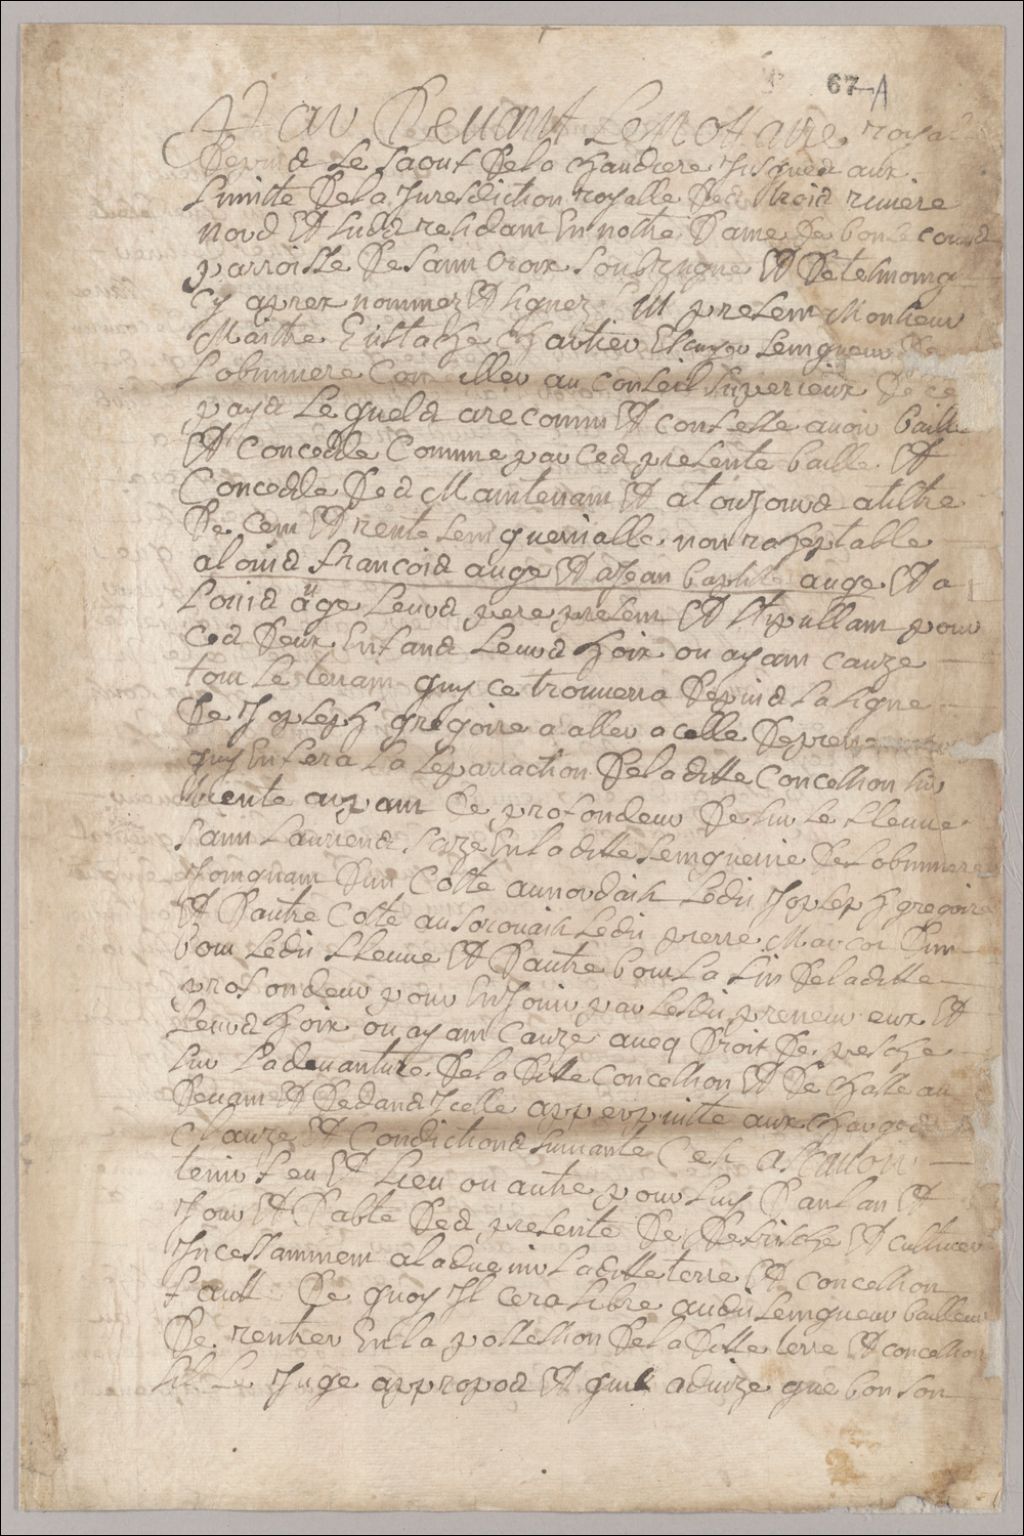 67 A
Par Devant Le nottaire royal
Depuis Le saout De la Chaudiere Jusques aux
Limitte De la Juresdiction royalle Des trois riuiere
nord Et sud residant En nottre Dame De bonsecours
parroisse De saint Croix soubzsigne Et Detesmoings
cy aprex nommez Et signez fut present Monsieur
Maistre Eustache Chartier Escuyer seigneur De
Lobinniere Conseiller au Conseil superieur De ce
pays Lequels a recounu Et confesse auoir baille
Et concedde Comme par ces presente baille Et
Concedde Des Maintenant Et atousjours atiltre
De Cens Et rente seigneurialle non racheptable
a louis francois auge Et a Jean baptiste auge Et a
Louis auge Leurs pere present Et stipullant pour
ces Deux Enfans Leurs hoix ou ayant cauze
tout Le terrain quy ce trouuerra Depuis La ligne
De Joseph gregoire a aller a celle De pierre
quy En fera La separraction De la ditte Concession sur
trente arpant De profondeur De sur Le fleuue
saint Laurend size En la ditte seigneurie De Lobinniere
Joingnant D'un Cotte au nordaist Ledit Joseph gregoire
Et D'autre Cotte au sorouaist Ledit pierre Marcot D'un
bout Ledit fleuue Et D'autre bout La fin De la ditte
profondeur pour En Jouir par Lesdit preneur eux Et
Leurs hoix ou ayant Cauze aueq Droit De pesche
sur La deuanture De la Ditte Concession Et De Chasse au
Deuant Et Dedans Jcelle apperpuitte aux charges
Clauze Et Condictions suiuante C'est assauoir
tenir feu Et Lieu ou autre pour Luy Dans l'an Et
Jour Et Datte Des presente De Defriche Et cultiuer
Jncessamment aladueinir La ditte terre Et concession
faute De quoy Jl cera Libre audit seigneur bailleur
De rentrer En La possession De la Ditte terre Et concession
sil Le Juge appropos Et quil aduize que bon son